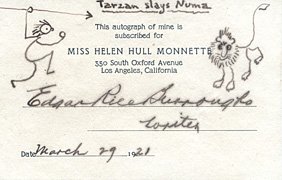 Tarzan slays Numa
This autograph of mine is
subscribed for
MISS HELEN HULL MONNETTE
350 South Oxford Avenue
Los Angeles, California
Edgar Rice Burroughs
Writer
Date March 29 1921